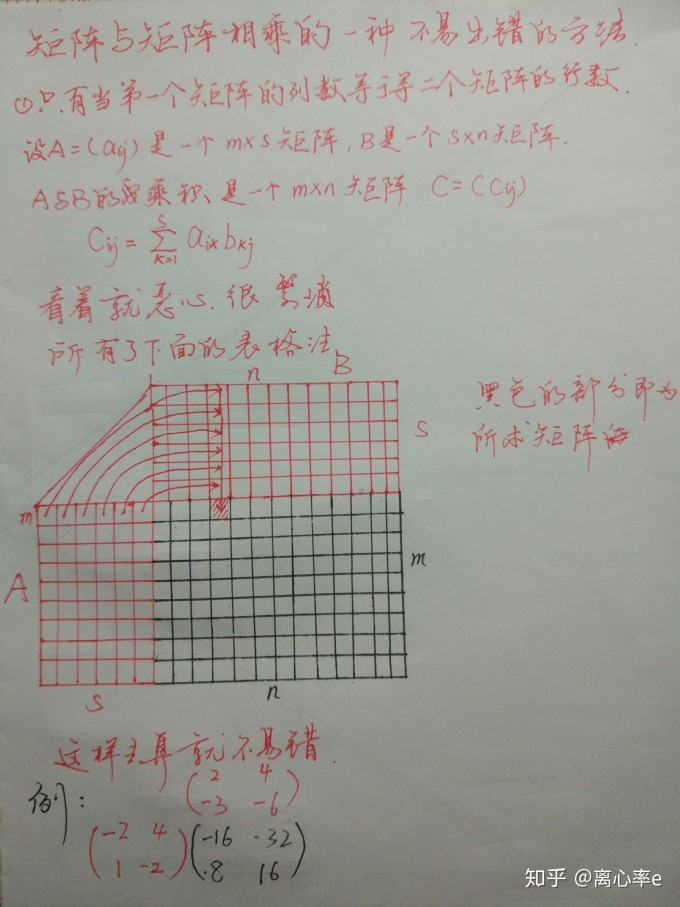 矩阵与矩阵相乘的一种不易出错的方法.
①只有当第一个矩阵的列数等于第二个矩阵的行数.
设A=(aij)是一个m×s矩阵,B是一个s×n矩阵.
A与B的乘积是一个m×n矩阵 C=(Cij)
Cij=∑(k=1→s) aik bkj
看着就恶心.很繁琐
所有了下面的表格法
n B
黑色的部分即为
所求矩阵
s
m
A
m
s
n
这样去算就不易错.
例:
(2 4
-3 -6)
(-2 4 (-16 -32
1 -2) 8 16)
知乎 @离心率e